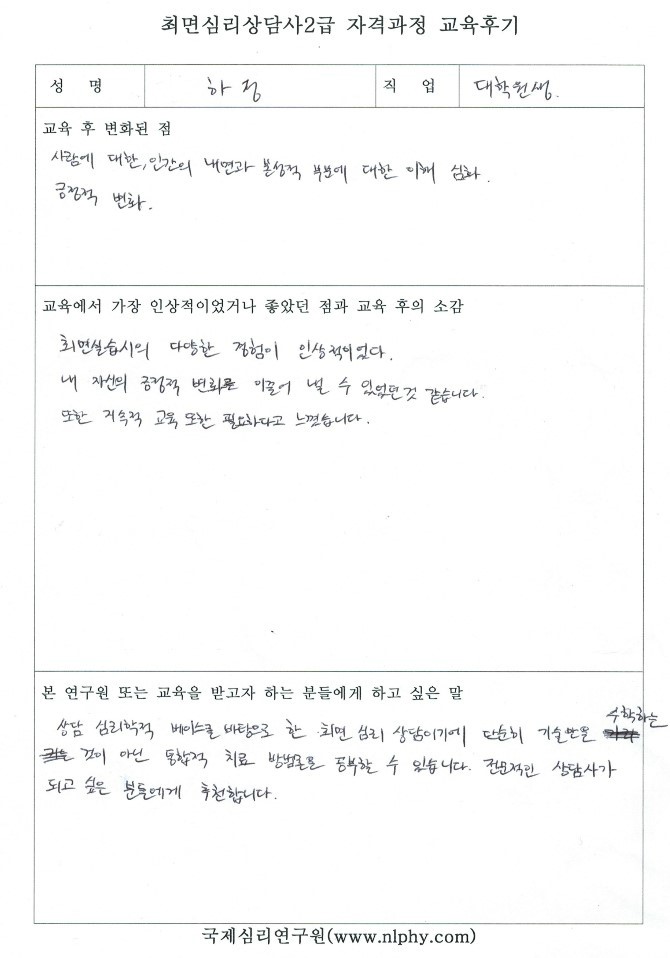 최면심리상담사2급 자격과정 교육후기
성 명 하정 직 업 대학원생.
교육 후 변화된 점
사람에 대한, 인간의 내면과 본성적 부분에 대한 이해 심화.
긍정적 변화.
교육에서 가장 인상적이었거나 좋았던 점과 교육 후의 소감
최면실습시의 다양한 경험이 인상적이었다.
내 자신의 긍정적 변화로 이끌어 낼 수 있었던 것 같습니다.
또한 지속적 교육 또한 필요하다고 느꼈습니다.
본 연구원 또는 교육을 받고자 하는 분들에게 하고 싶은 말
상담 심리학적 베이스를 바탕으로 한 최면 심리 상담이기에 단순히 기술만을 수학하는
것이 아닌 통합적 치료 방법론을 공부할 수 있습니다. 전문적인 상담사가
되고 싶은 분들에게 추천합니다.
국제심리연구원(www.nlphy.com)